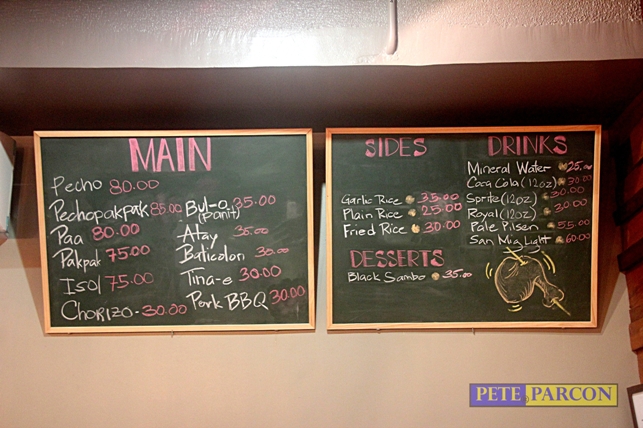 MAIN
Pecho 80.00
Pechopakpak 85.00
Paa 80.00
Pakpak 75.00
Isol 75.00
Chorizo - 30.00
Bul-o 35.00
(Panit)
Atay 35.00
Baticolon 30.00
Tina-e 30.00
Pork BBQ 30.00
SIDES
Garlic Rice 35.00
Plain Rice 25.00
Fried Rice 30.00
DESSERTS
Black Sambo 35.00
DRINKS
Mineral Water 25.00
Coca Cola (12oz) 30.00
Sprite (12oz) 30.00
Royal (12oz) 30.00
Pale Pilsen 55.00
San Mig Light 60.00
PETE PARCON